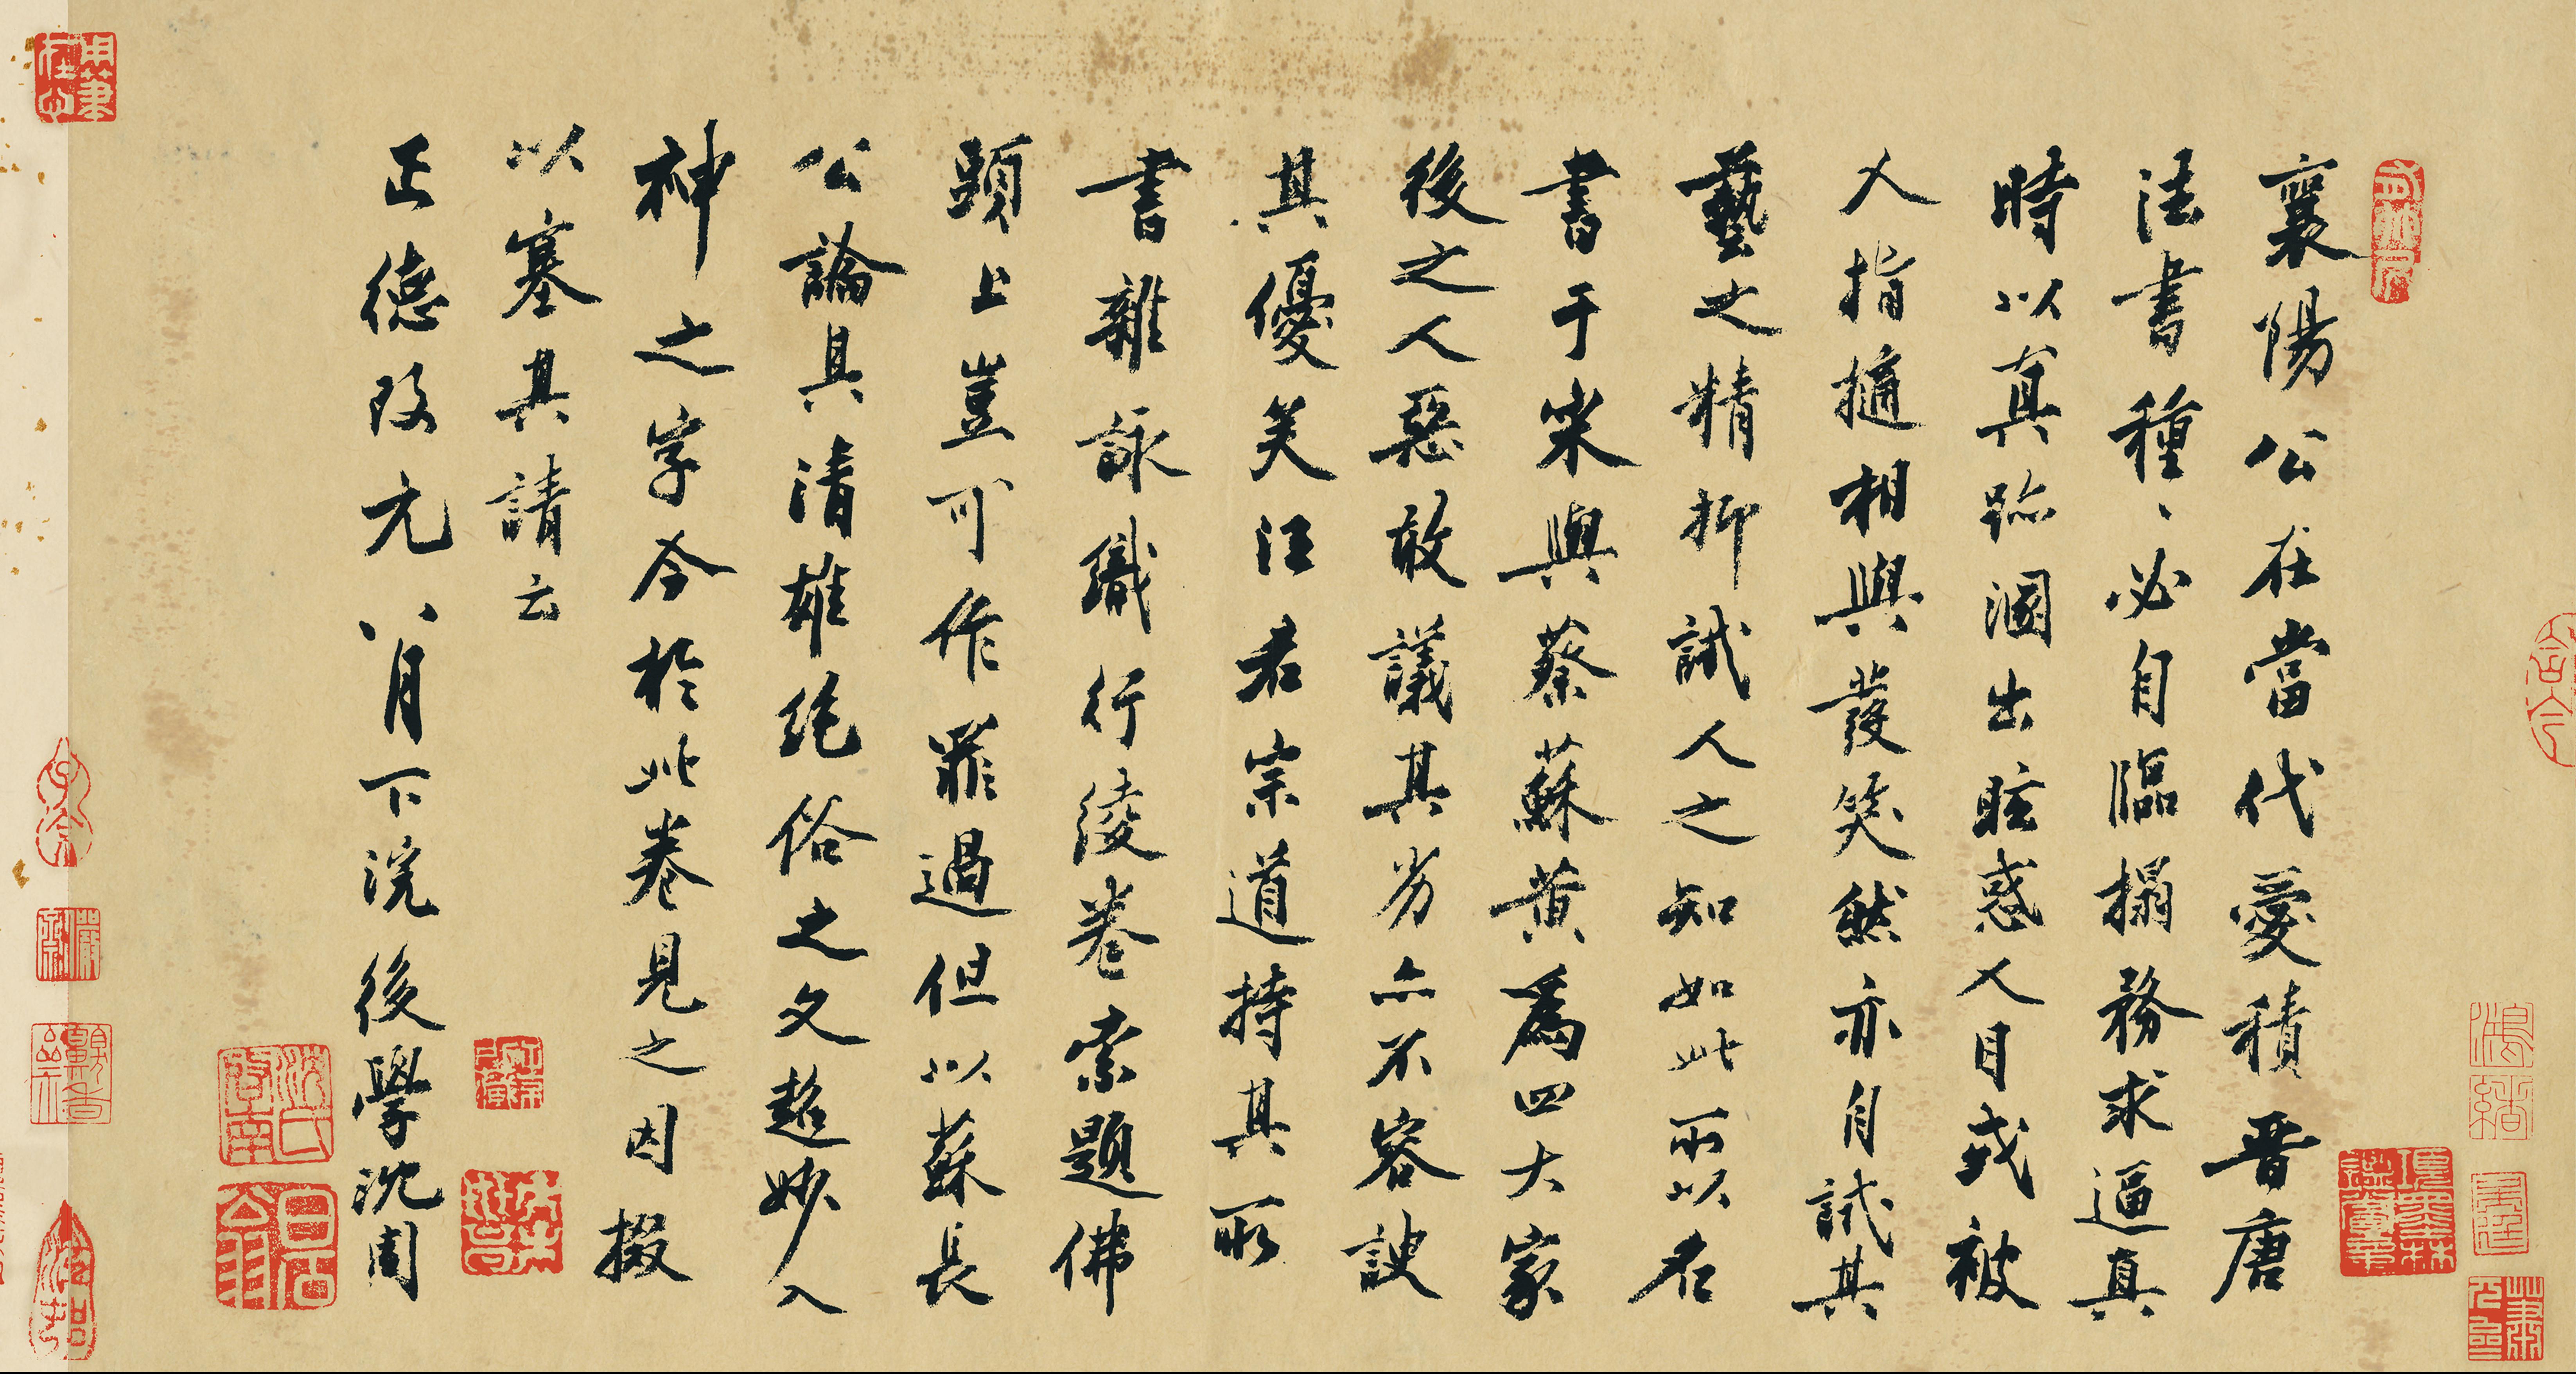 襄陽公在當代愛積晋唐
法書種、必自臨搨務求逼真
時以真跡溷出眩惑人目或被
人指擿相與發笑然亦自試其
藝之精抑試人之知如此所以名
書于宋與蔡蘇黄爲四大家
後之人惡敢議其劣亦不容諛
其優美汪君宗道持其所
書雜詠織行綾卷索題佛
頭上豈可作罪過但以蘇長
公論具清雄絶俗之文超妙入
神之字今於此卷見之因掇
以塞其請云
正德改元八月下浣後學沈周